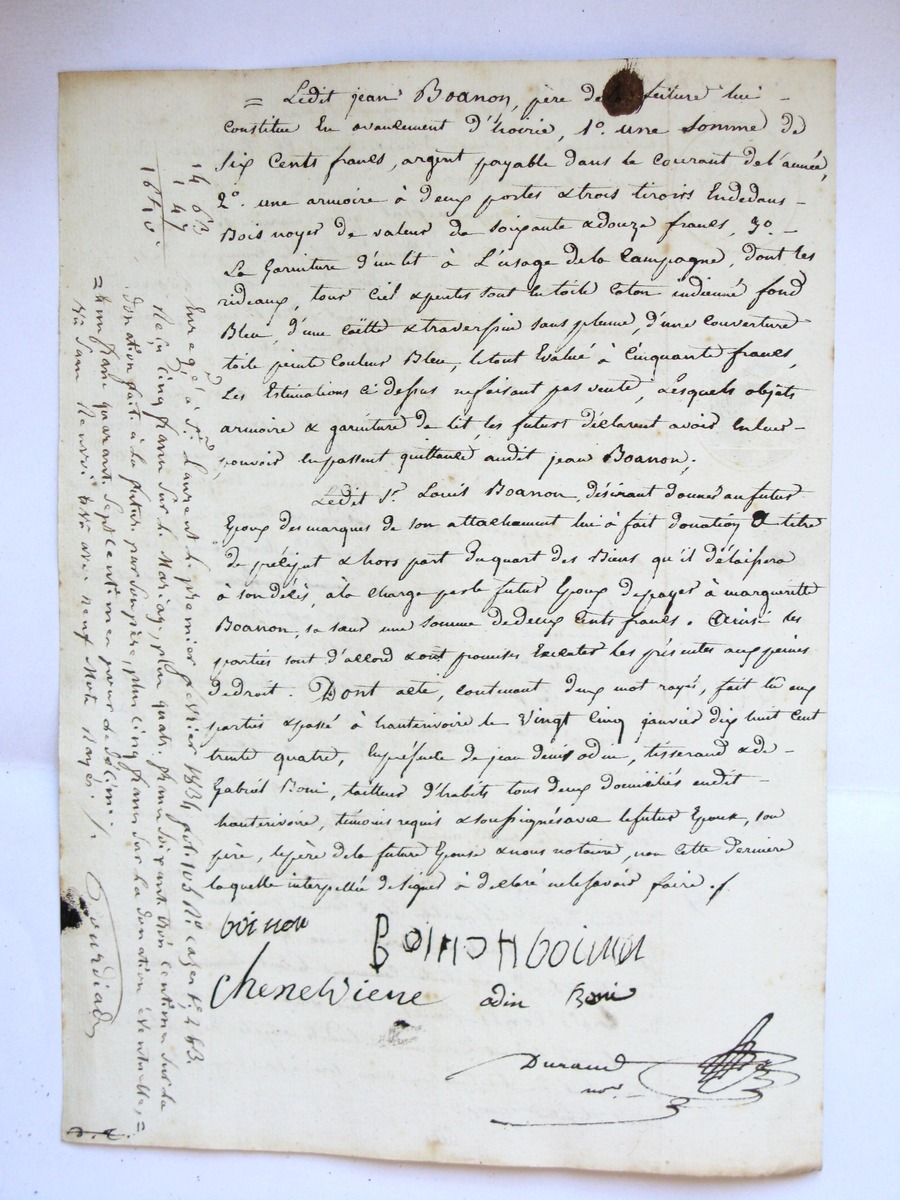 = Ledit jean Boanon, père de future lui
constitue En avancement d'hoirie, 1o. une somme de
six cents francs, argent payable dans le courant de l'année,
2o. une armoire à deux portes & trois tiroirs Endedans
Bois noyer de valeur de soixante & douze francs, 3o.
La Garniture d'un lit à L'usage de la Campagne, dont les
rideaux, tour Ciel & pentes sont en toile Coton indienné fond
Bleu, d'une Coëtte & traversin sans plume, d'une couverture
toile peinte Couleur Bleu, le tout Evalué à Cinquante francs,
Les Estimations Ci dessus ne faisant pas vente, Lesquels objets
armoire & garniture de lit, les futurs déclarent avoir En leur
pouvoir En passent quittance audit jean Boanon;
Ledit Sr. Louis Boanon, désirant donner au futur
Epoux des marques de son attachement lui à fait donation à titre
de préciput & hors part Du quart des Biens qu'il délaissera
à son décès, à la charge par le futur Epoux de payer à margueritte
Boanon, sa sœur une somme de deux Cents francs. Ainsi les
parties sont d'accord & ont promises Exécuter les présentes aux peines
de droit. Dont acte, contenant deux mot rayés, fait lu aux
parties & passé à hauterivoire le Vingt Cinq janvier dix huit cent
trente quatre, En présence de jean denis odin, tisserand & de
Gabriel Boni, tailleur d'habits tous deux domiciliés audit
hauterivoire, témoins requis & soussignés avec le futur Epoux, son
père, le père de la future Epouse & nous notaire, non Cette Dernière
laquelle interpellée de signer à déclaré ne le savoir faire ./.
boinon
Boinon boinon
Chenevierre odin Boni
Durand
nore.
14 63
1 47
16 10
Enregé à St. Laurent le premier février 1834, fol. 103 Ro. cases 1 & 2 & 3.
Reçu cinq francs sur le Mariage, plus quatre francs soixante trois centimes sur la
donation faite à la future par son père, plus cinq francs sur la donation éventuelle, =
= Un franc quarante sept centimes pour décime.
Gourdiad